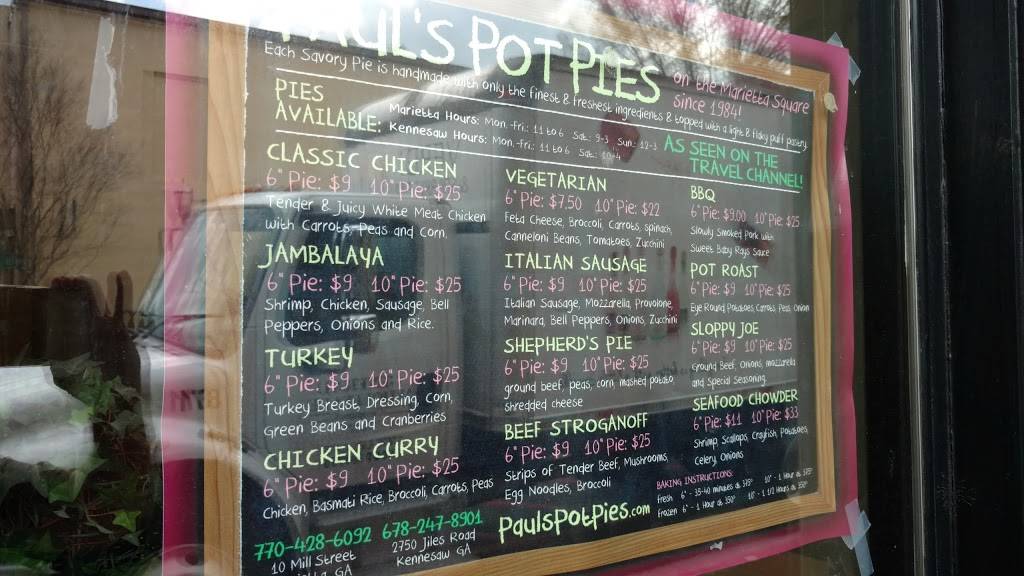 PAUL'S POT PIES
on the Marietta Square
Since 1984!
Each Savory Pie is handmade with only the finest & freshest ingredients & topped with a light & flaky puff pastry.
PIES
AVAILABLE:
Marietta Hours: Mon.-Fri.: 11 to 6 Sat.: 9-3 Sun.: 12-3
Kennesaw Hours: Mon.-Fri.: 11 to 6 Sat.: 10-4
AS SEEN ON THE
TRAVEL CHANNEL!
CLASSIC CHICKEN
6" Pie: $9 10" Pie: $25
Tender & Juicy White Meat Chicken
with Carrots, Peas and Corn.
JAMBALAYA
6" Pie: $9 10" Pie: $25
Shrimp, Chicken, Sausage, Bell
Peppers, Onions and Rice.
TURKEY
6" Pie: $9 10" Pie: $25
Turkey Breast, Dressing, Corn,
Green Beans and Cranberries
CHICKEN CURRY
6" Pie: $9 10" Pie: $25
Chicken, Basmati Rice, Broccoli, Carrots, Peas
770-428-6092 678-247-8901
10 Mill Street
GA
2750 Jiles Road
Kennesaw GA
VEGETARIAN
6" Pie: $7.50 10" Pie: $22
Feta Cheese, Broccoli, Carrots, spinach,
Canneloni Beans, Tomatoes, Zucchini
ITALIAN SAUSAGE
6" Pie: $9 10" Pie: $25
Italian Sausage, Mozzarella, Provolone,
Marinara, Bell Peppers, Onions, Zucchini
SHEPHERD'S PIE
6" Pie: $9 10" Pie: $25
ground beef, peas, corn, mashed potato
shredded cheese
BEEF STROGANOFF
6" Pie: $9 10" Pie: $25
Strips of Tender Beef, Mushrooms,
Egg Noodles, Broccoli
PaulsPotPies.com
BBQ
6" Pie: $9.00 10" Pie: $25
Slowly Smoked Pork with
Sweet Baby Rays Sauce
POT ROAST
6" Pie: $9 10" Pie: $25
Eye Round, Potatoes, Carrots, Peas, Onion
SLOPPY JOE
6" Pie: $9 10" Pie: $25
Ground Beef, Onions, mozzarella
and Special Seasoning
SEAFOOD CHOWDER
6" Pie: $11 10" Pie: $33
Shrimp, Scallops, Crayfish, Potatoes,
Celery, Onions
BAKING INSTRUCTIONS:
Fresh 6" - 35-40 minutes @ 375° 10" - 1 Hour @ 375°
Frozen 6" - 1 Hour @ 350° 10" - 1 1/2 Hours @ 350°